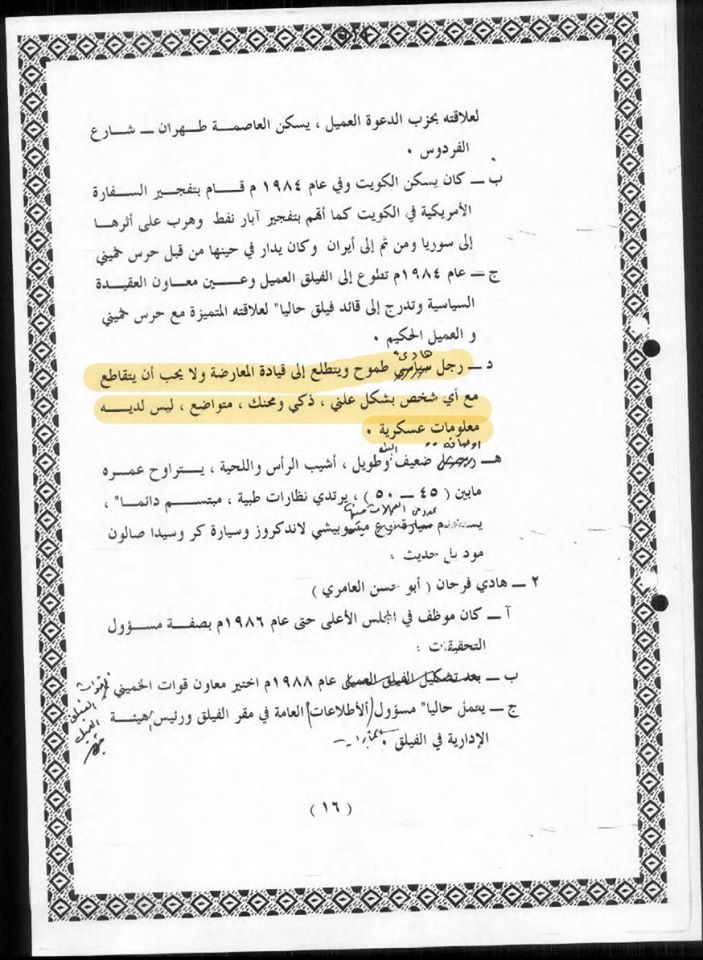 لعلاقته بحزب الدعوة العميل ، يسكن العاصمة طهران ــ شارع
الفردوس .
ب ــ كان يسكن الكويت وفي عام ١٩٨٤ م قام بتفجير السفارة
الأمريكية في الكويت كما أتهم بتفجير آبار نفط وهرب على أثرها
إلى سوريا ومن ثم إلى أيران وكان يدار في حينها من قبل حرس خميني
ج ــ عام ١٩٨٤م تطوع إلى الفيلق العميل وعين معاون العقيدة
السياسية وتدرج إلى قائد فيلق حاليا" لعلاقته المتميزة مع حرس خميني
و العميل الحكيم .
هادئ
د ــ رجل سياسي طموح ويتطلع إلى قيادة المعارضة ولا يحب أن يتقاطع
مع أي شخص بشكل علني ، ذكي ومحنك ، متواضع ، ليس لديه
معلومات عسكرية .
اوصافه
هـ ــ ضعيف وطويل ، أشيب الرأس واللحية ، يتراوح عمره
مابين ( ٤٥ ــ ٥٠ ) ، يرتدي نظارات طبية ، مبتسم دائما" ،
يستخدم سيارة نوع ميتسوبيشي لاندكروز وسيارة كر وسيدا صالون
موديل حديث .
٢ ــ هادي فرحان ( أبو حسن العامري )
آ ــ كان موظف في المجلس الأعلى حتى عام ١٩٨٦م بصفة مسؤول
التحقيقات .
ب ــ بعد تشكيل الفيلق العميل عام ١٩٨٨م اختير معاون قوات الخميني
ج ــ يعمل حاليا" مسؤول (الأطلاعات) العامة في مقر الفيلق ورئيس هيئة
الإدارية في الفيلق .
( ١٦ )